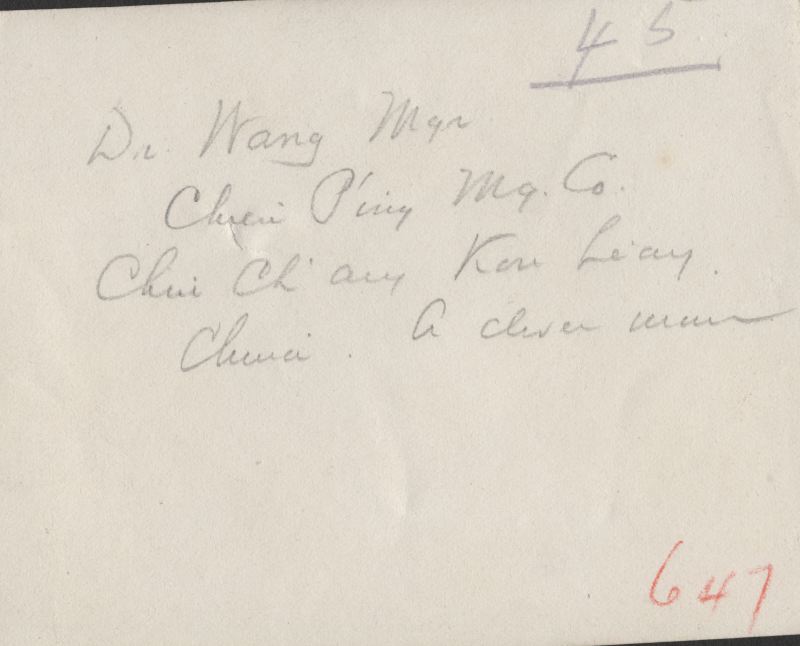 45
Dr. Wang Mgr
Chien P'ing Mg. Co.
Chin Ch'ang Kou Liang
China. A clever man
647